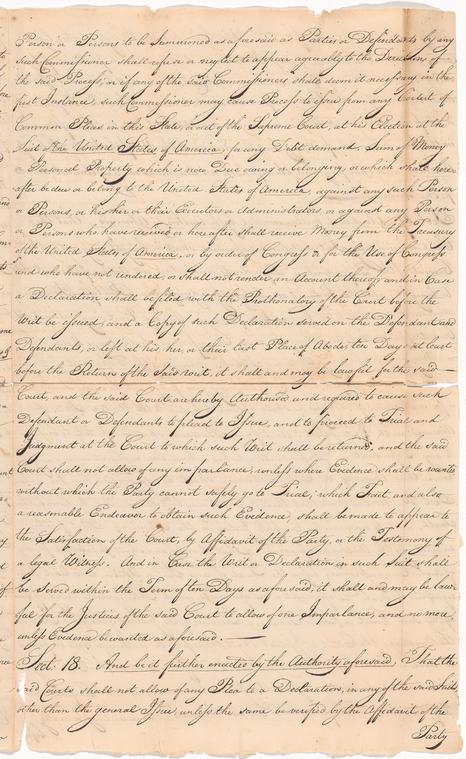 Person or Persons to be Summoned as aforesaid as Parties or Defendants by any
such Commissioner shall refuse or neglect to appear agreeably to the Direction of
the said Process, or if any of the said Commissioners shall deem it necessary in the
first Instance, such Commissioner may cause Process to issue from any Court of
Common Pleas in this State, or out of the Supreme Court, at his Election at the
Suit of the United States of America, for any Debt demand, Sum of Money
or Personal Property which is now Due owing or belonging, or which shall here-
after be due or belong to the United States of America, against any such Person
or Persons, or his her or their Executors or Administrators, or against any Person
or Persons who have received or hereafter shall receive Money from the Treasury
of the United States of America, or by order of Congress or for the Use of Congress
and who have not rendered, or shall not render an Account thereof; and in Case
a Declaration shall be filed with the Prothonotary of the Court before the
Writ be issued, and a Copy of such Declaration served on the Defendant and
Defendants, or left at his, her, or their last Place of Abode ten Days at least
before the Return of the said writ, it shall and may be lawful for the said —
Court, and the said Court are hereby Authorised and required to cause such
Defendant or Defendants to plead to Issue, and to proceed to Trial and
Judgment at the Court to which such Writ shall be returned, and the said
Court shall not allow of any imparlance, unless where Evidence shall be wanted
without which the Party cannot safely go to Trial; which Fact and also
a reasonable Endeavor to obtain such Evidence, shall be made to appear to
the Satisfaction of the Court, by Affidavit of the Party, or the Testimony of
a legal Witness. And in Case the Writ or Declaration in such Suit shall
be served within the Term of ten Days as aforesaid, it shall and may be law-
ful for the Justices of the said Court to allow of one Imparlance, and no more,
unless Evidence be wanted as aforesaid. —
Sect. 18. And be it further enacted by the Authority aforesaid, That the
said Courts shall not allow of any Plea to a Declaration, in any of the said Suits
other than the general Issue, unless the same be verified by the Affidavit of the
Party